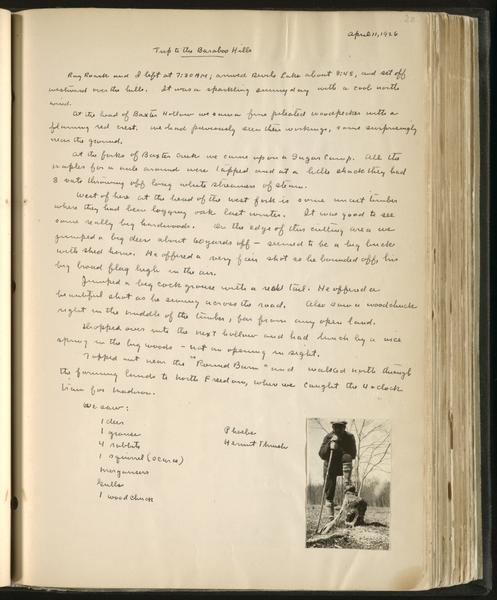 20
April 11, 1926
Trip to the Baraboo Hills
Ray Roark and I left at 7:30 AM, arrived Devils Lake about 8:45, and set off
westward over the hills. It was a sparkling sunny day with a cool north
wind.
At the head of Baxter Hollow we saw a fine pileated woodpecker with a
flaming red crest. We had previously seen their workings, some surprisingly
near the ground.
At the forks of Baxter Creek we came upon a Sugar Camp. All the
maples for a mile around were tapped and at a little shack they had
3 vats throwing off long white streamers of steam.
West of here at the head of the west fork is some uncut timber
where they had been logging oak last winter. It was good to see
some really big hardwoods. On the edge of this cutting area we
jumped a big deer about 60 yards off - seemed to be a big buck
with shed horns. He offered a very fair shot as he bounded off, his
big broad flag high in the air.
Jumped a big cock grouse with a red tail. He offered a
beautiful shot as he swung across the road. Also saw a woodchuck
right in the middle of the timber, far from any open land.
Chopped over into the next hollow and had lunch by a nice
spring in the big woods - not an opening in sight.
Topped out near the "Pound Burn" and walked north through
the farming lands to North Freedom, where we caught the 4 oclock
train for Madison.
We saw:
1 deer
1 grouse
4 rabbits
1 squirrel (
mergansers
Gulls
1 woodchuck
Phoebe
Hermit Thrush